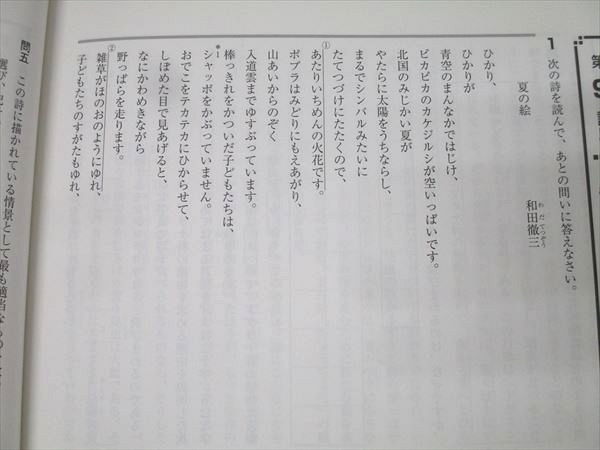 第
9
1 次の詩を読んで、あとの問いに答えなさい。
夏の絵
和田徹三
わだてつぞう
ひかり、
ひかりが
青空のまんなかではじけ、
ピカピカのカケジルシが空いっぱいです。
北国のみじかい夏が
やたらに太陽をうちならし、
まるでシンバルみたいに
たてつづけにたたくので、
①あたりいちめんの火花です。
ポプラはみどりにもえあがり、
山あいからのぞく
入道雲までゆすぶっています。
棒っきれをかついだ子どもたちは、
*1シャッポをかぶっていません。
おでこをテカテカにひからせて、
しぼめた目で見あげると、
なにかわめきながら
野っぱらを走ります。
②雑草がほのおのようにゆれ、
子どもたちのすがたもゆれ、
問五 この詩に描かれている情景として最も適当なものを
選び、記